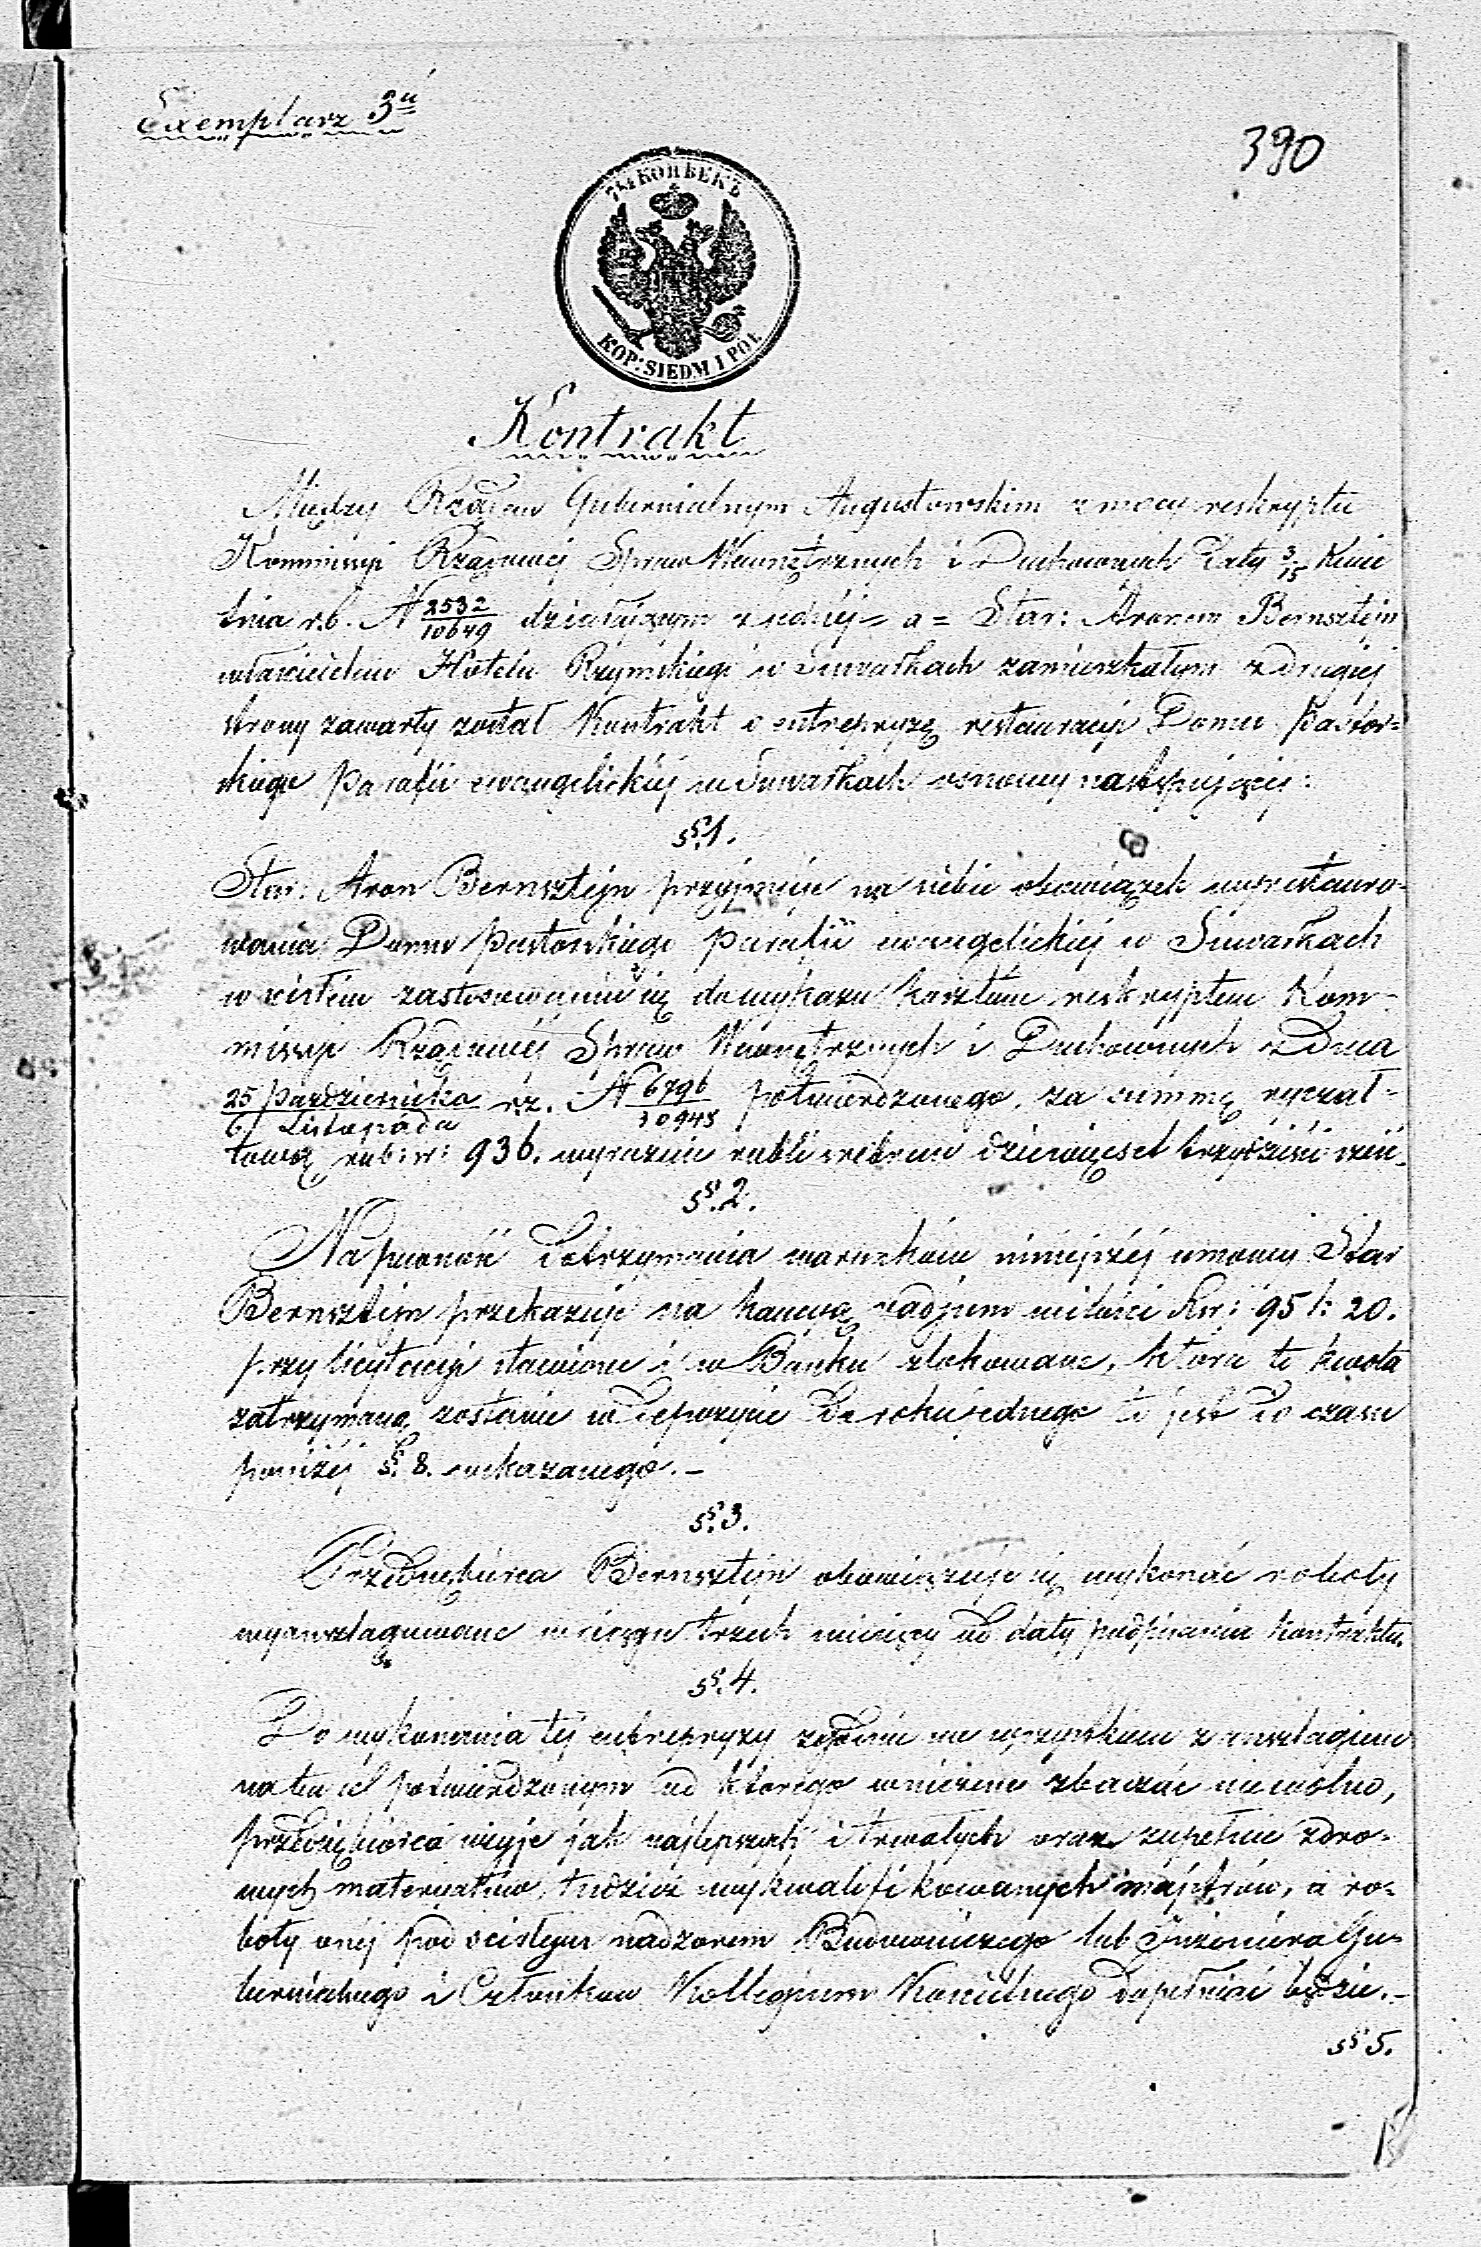 Exemplarz 3ci
390
7½ КОПѢЕКЪ
KOP: SIEDM I PÓŁ
Kontrakt
Między Rządem Gubernialnym Augustowskim z mocy reskryptu
Kommissyi Rządowej Spraw Wewnętrznych i Duchownych daty 3/15 Kwie
tnia r.b. N 2532/10649 działającym z jednéj = a = Star: Aronem Bernsztejn
właścicielem Hotelu Rzymskiego w Suwałkach zamieszkałym z drugiej
strony zawarty został Kontrakt o entrepryzę restauracyi Domu Pastor=
skiego Parafii ewangelickiej w Suwałkach osnowy następującéj:
§ 1.
Star: Aron Bernsztejn przyjmuje na siebie obowiązek wyrestauro-
wania Domu Pastorskiego Parafii ewangelickiej w Suwałkach
w ścisłem zastosowaniu się do wykazu kosztów reskryptem Kom-
missyi Rządowéj Spraw Wewnętrznych i Duchownych z Dnia
25 Października/6 Listopada r.z. N 6796/10945 potwierdzonego, za summę ryczał-
tową rub: sr: 936. wyraźnie rubli srebrem dziewięcset trzydzieści sześć.
§ 2.
Na pewność dotrzymania warunków niniejszéj umowy Star
Bernsztejn przekazuje na kaucyą vadium w ilości Rsr: 95 k: 20.
przy licytacyi stawione i w Banku ulokowane, która to kwota
zatrzymaną zostanie w depozycie do roku jednego to jest do czasu
poniżéj §. 8. wskazanego. –
§ 3.
Przedsiębiorca Bernsztejn obowiązuje się wykonać roboty
wyanszlagowane w ciągu trzech miesięcy od daty podpisania kontraktu.
§ 4.
Do wykonania téj entrepryzy zgodnie we wszystkiem z anszlagiem
na ten cel potwierdzonym od którego w niczem zbaczać nie wolno,
przedsiębiorca użyje jak najlepszych i trwałych oraz zupełnie zdro-
wych materyałów, tudzież wykwalifikowanych majstrów, a ro-
boty onéj pod ścisłym nadzorem Budowniczego lub Inżeniera Gu-
bernialnego i Członków Kollegium Kościelnego dopełniać będzie. –
§ 5.